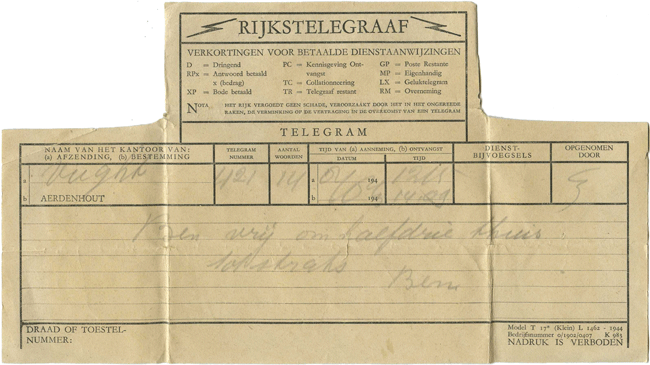 RIJKSTELEGRAAF
VERKORTINGEN VOOR BETAALDE DIENSTAANWIJZINGEN
D = Dringend
RPx = Antwoord betaald
x (bedrag)
XP = Bode betaald
PC = Kennisgeving Ont-
vangst
TC = Collationneering
TR = Telegraaf restant
GP = Poste Restante
MP = Eigenhandig
LX = Geluktelegram
RM = Overseining
NOTA HET RIJK VERGOEDT GEEN SCHADE, VEROORZAAKT DOOR HET IN HET ONGEREEDE
RAKEN, DE VERMINKING OF DE VERTRAGING IN DE OVERKOMST VAN EEN TELEGRAM
TELEGRAM
NAAM VAN HET KANTOOR VAN:
(a) AFZENDING, (b) BESTEMMING
TELEGRAM
NUMMER
AANTAL
WOORDEN
TIJD VAN (a) AANNEMING, (b) ONTVANGST
DATUM
TIJD
DIENST-
BIJVOEGSELS
OPGENOMEN
DOOR
a Vught 421 14 a 194
b AERDENHOUT b 194
Ben vrij om halfdrie thuis
tot straks
Ben
DRAAD OF TOESTEL-
NUMMER:
Model T 17* (Klein) L 1462 - 1944
Bedrijfsnummer 0/1902/0407 K 983
NADRUK IS VERBODEN